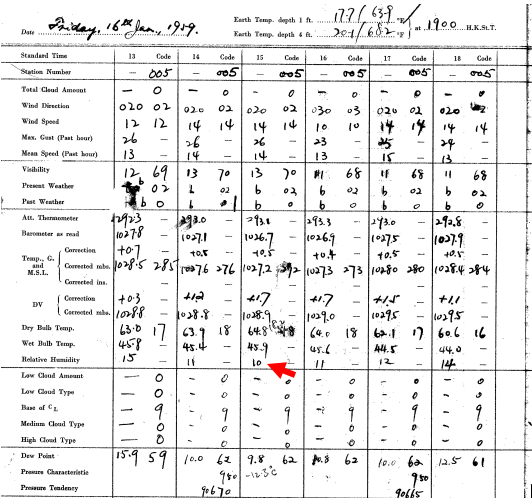 Date Friday, 16th Jan., 1959.
Earth Temp. depth 1 ft. 17.7/63.9 °F
Earth Temp. depth 4 ft. 20.1/68.2 °F at 1900 H.K.St.T.
Standard Time 13 Code 14 Code 15 Code 16 Code 17 Code 18 Code
Station Number — 005 — 005 — 005 — 005 — 005 — 005
Total Cloud Amount — 0 — 0 — 0 — 0 — 0 — 0
Wind Direction 020 02 020 02 020 02 030 03 020 02 020
Wind Speed 12 12 14 14 14 14 10 10 14 14 14 14
Max. Gust (Past hour) 26 — 26 — 26 — 23 — 25 — 24 —
Mean Speed (Past hour) 13 — 14 — 14 — 13 — 15 — 13 —
Visibility 12 69 13 70 13 70 11 68 11 68 11 68
Present Weather b 02 b 02 b 02 b 02 b 02 b 02
Past Weather b 0 b b 0 b 0 b 0 b 0
Att. Thermometer 292.3 — 293.0 — 293.1 — 293.3 — 293.0 — 292.8 —
Barometer as read 1027.8 — 1027.1 — 1026.7 — 1026.9 — 1027.5 — 1027.9 —
Temp., G. and M.S.L.
Correction +0.7 — +0.5 — +0.5 — +0.4 — +0.5 — +0.5 —
Corrected mbs. 1028.5 285 1027.6 276 1027.2 1027.3 273 1028.0 280 1028.4 284
Corrected ins. — — — — — —
DV
Correction +0.3 — +1.2 — +1.7 — +1.7 — +1.5 — +1.1 —
Corrected mbs. 1028.8 — 1028.8 — 1028.9 — 1029.0 — 1029.5 — 1029.5 —
Dry Bulb Temp. 63.0 17 63.9 18 64.8 64.0 18 62.1 17 60.6 16
Wet Bulb Temp. 45.8 — 45.4 — 45.9 — 45.6 — 44.5 — 44.0 —
Relative Humidity 15 — 11 — 10 — 11 — 12 — 14 —
Low Cloud Amount — 0 — 0 — 0 — 0 — 0 — 0
Low Cloud Type — 0 — 0 — 0 — 0 — 0 — 0
Base of CL — 9 — 9 — 9 — 9 — 9 — 9
Medium Cloud Type — 0 — 0 — 0 — 0 — 0 — 0
High Cloud Type — 0 — 0 — 0 — 0 — 0 — 0
Dew Point 15.9 59 10.0 62 9.8 62 10.8 62 10.0 62 12.5 61
Pressure Characteristic -12.3°C
Pressure Tendency 90670 90665